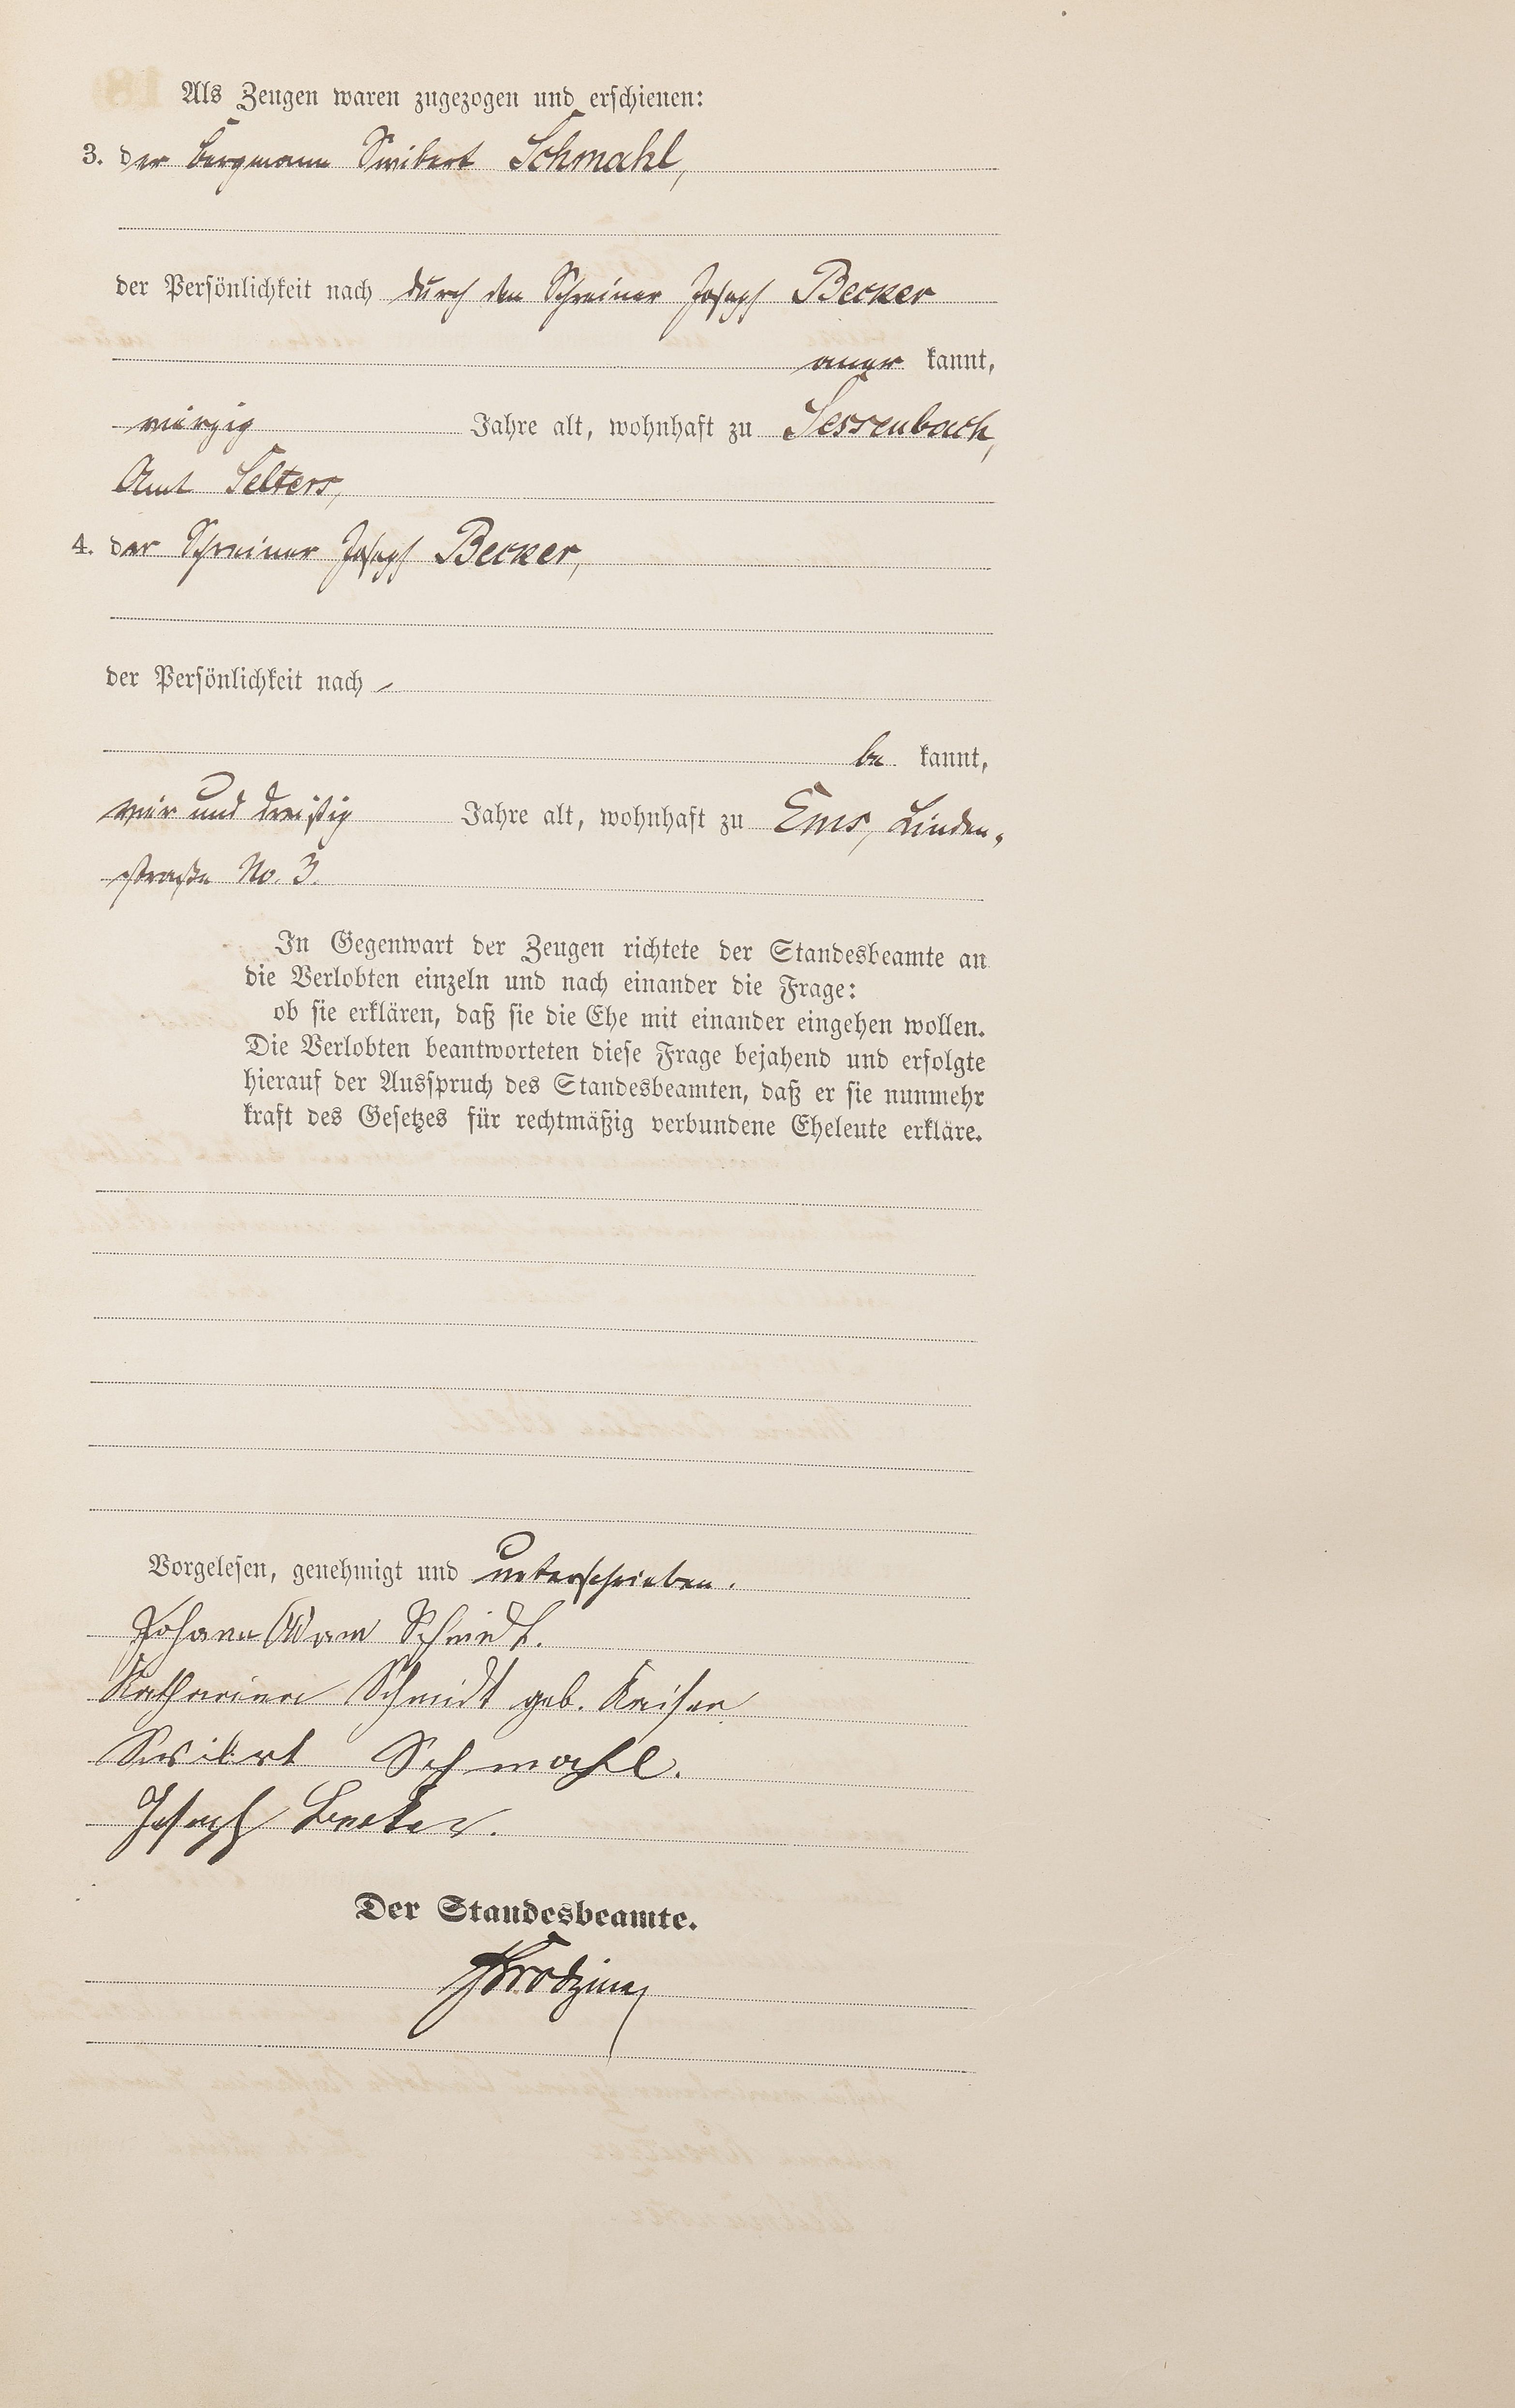 Als Zeugen waren zugezogen und erschienen:
3. der Bergmann Swibert Schmahl,
der Persönlichkeit nach durch den Schreiner Joseph Becker
aner kannt,
vierzig Jahre alt, wohnhaft zu Sessenbach,
Amt Selters,
4. der Schreiner Joseph Becker,
der Persönlichkeit nach
be kannt,
vier und dreißig Jahre alt, wohnhaft zu Ems, Linden-
straße No. 3.
In Gegenwart der Zeugen richtete der Standesbeamte an
die Verlobten einzeln und nach einander die Frage:
ob sie erklären, daß sie die Ehe mit einander eingehen wollen.
Die Verlobten beantworteten diese Frage bejahend und erfolgte
hierauf der Ausspruch des Standesbeamten, daß er sie nunmehr
kraft des Gesetzes für rechtmäßig verbundene Eheleute erkläre.
Vorgelesen, genehmigt und unterschrieben.
Johann Adam Schmidt.
Katharina Schmidt geb. Kaiser
Swibert Schmahl.
Joseph Becker.
Der Standesbeamte.